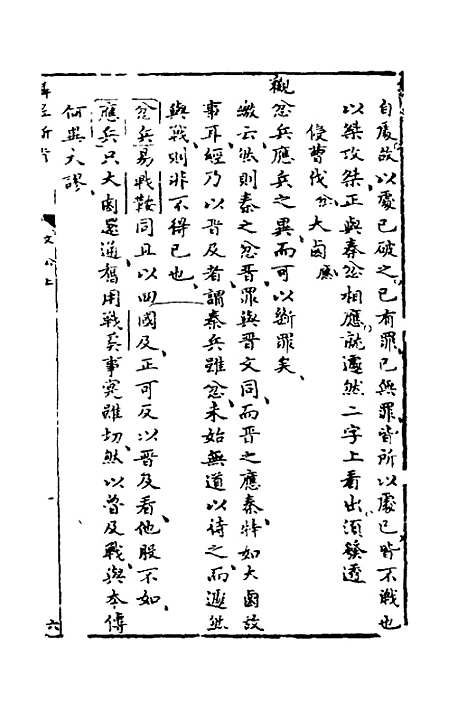 自處故以處己破之己有罪己無罪皆所以處己皆不戰也
以桀攻桀正與秦忿相應就遽然二字上看出須發透
侵曹伐忿大鹵應
觀忿兵應兵之異而可以斷罪矣
繳云然則秦之忿晋罪與晋文同而晋之應秦特如大鹵故
事耳經乃以晋及者謂秦兵雖忿未始無道以待之而遽然
與戰則非不得已也
忿兵易戰鞍同且以四國及正可反以晋及看他股不如
應兵只大鹵還通舊用戰長事寔雖切然以魯及戰與本傳
何異大謬
文公上
六